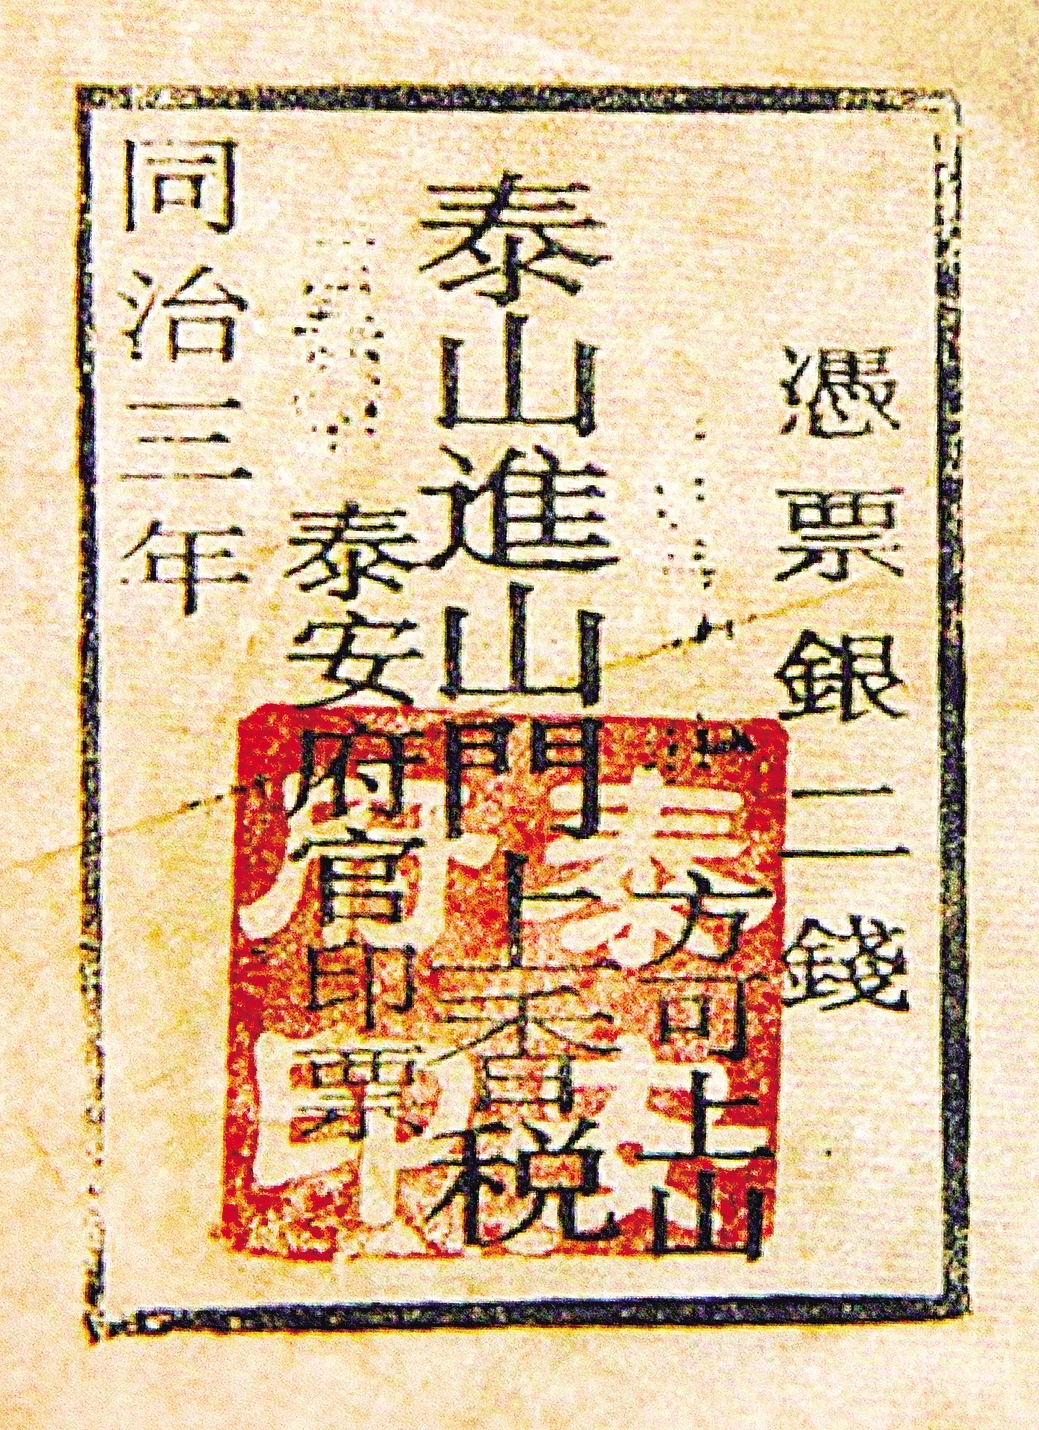 憑票銀二錢
方可上山
泰山進山門上香税
泰安府官印票
同治三年
泰安
府印